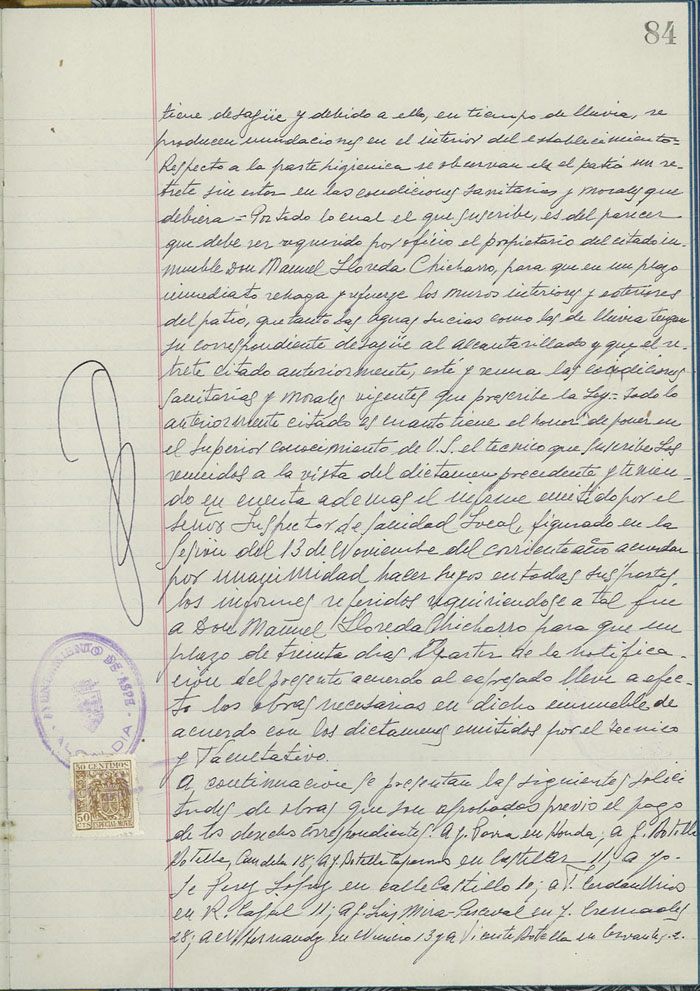 84
tiene desagüe y debido a ello, en tiempo de lluvia, se
producen inundaciones en el interior del establecimiento=
Respecto a la parte higienica se observan en el patio un re-
trete sin estar en las condiciones sanitarias y morales que
debiera = Por todo lo cual el que suscribe, es del parecer
que debe ser requerido por oficio el propietario del citado in-
mueble Don Manuel Lloreda Chicharro, para que en un plazo
inmediato rehaga y refuerze los muros interiores y exteriores
del patio, que tanto las aguas sucias como las de lluvia tengan
su correspondiente desagüe al alcantarillado y que el re-
trete citado anteriormente, esté y reuna las condiciones
sanitarias y morales vigentes que prescribe la Ley = Todo lo
anteriormente citado es cuanto tiene el honor de poner en
el superior conocimiento de V.S. el tecnico que suscribe Los
reunidos a la vista del dictamen precedente y tenien-
do en cuenta ademas el informe emitido por el
señor Inspector de Sanidad Local, figurado en la
Sesión del 13 de Noviembre del corriente año acuerdan
por unanimidad hacer suyos en todas sus partes
los informes referidos requiriendose a tal fin
a Don Manuel Lloreda Chicharro para que en
plazo de treinta dias a partir de la notifica-
ción del presente acuerdo al expresado lleve a efec-
to las obras necesarias en dicho inmueble de
acuerdo con los dictamenes emitidos por el Tecnico
y Facultativo.
A continuación se presentan las siguientes solici-
tudes de obras que son aprobadas previo el pago
de los derechos correspondientes. A J. Parra en Honda; a J. Botella
Botella, Candela 18; a J. Botella en Castelar 11; a Jo-
se Perez Lopez en calle Castillo 10; a T.
en R. Cajal 11; a J. Luis Mira-Perceval en J. Cremades
28; a Hernandez en 13 y a Vicente Botella en Cervantes 2.
AYUNTAMIENTO DE ASPE
ALCALDIA
50 CENTIMOS
50
CTS
ESPECIAL MOVIL